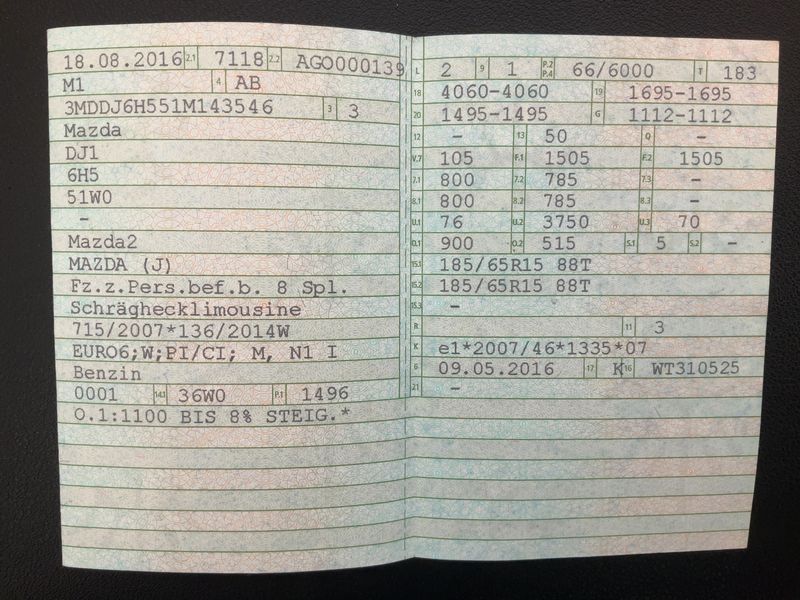 18.08.2016 2.1 7118 2.2 AGO000139
M1 4 AB
3MDDJ6H551M143546 3 3
Mazda
DJ1
6H5
51W0
–
Mazda2
MAZDA (J)
Fz.z.Pers.bef.b. 8 Spl.
Schräghecklimousine
715/2007*136/2014W
EURO6;W;PI/CI; M, N1 I
Benzin
0001 14.1 36W0 P.1 1496
O.1:1100 BIS 8% STEIG.*
L 2 9 1 P.2 P.4 66/6000 T 183
18 4060-4060 19 1695-1695
20 1495-1495 G 1112-1112
12 – 13 50 Q –
V.7 105 F.1 1505 F.2 1505
7.1 800 7.2 785 7.3 –
8.1 800 8.2 785 8.3 –
U.1 76 U.2 3750 U.3 70
O.1 900 O.2 515 S.1 5 S.2 –
15.1 185/65R15 88T
15.2 185/65R15 88T
15.3 –
R 11 3
K e1*2007/46*1335*07
6 09.05.2016 17 K 16 WT310525
21 –